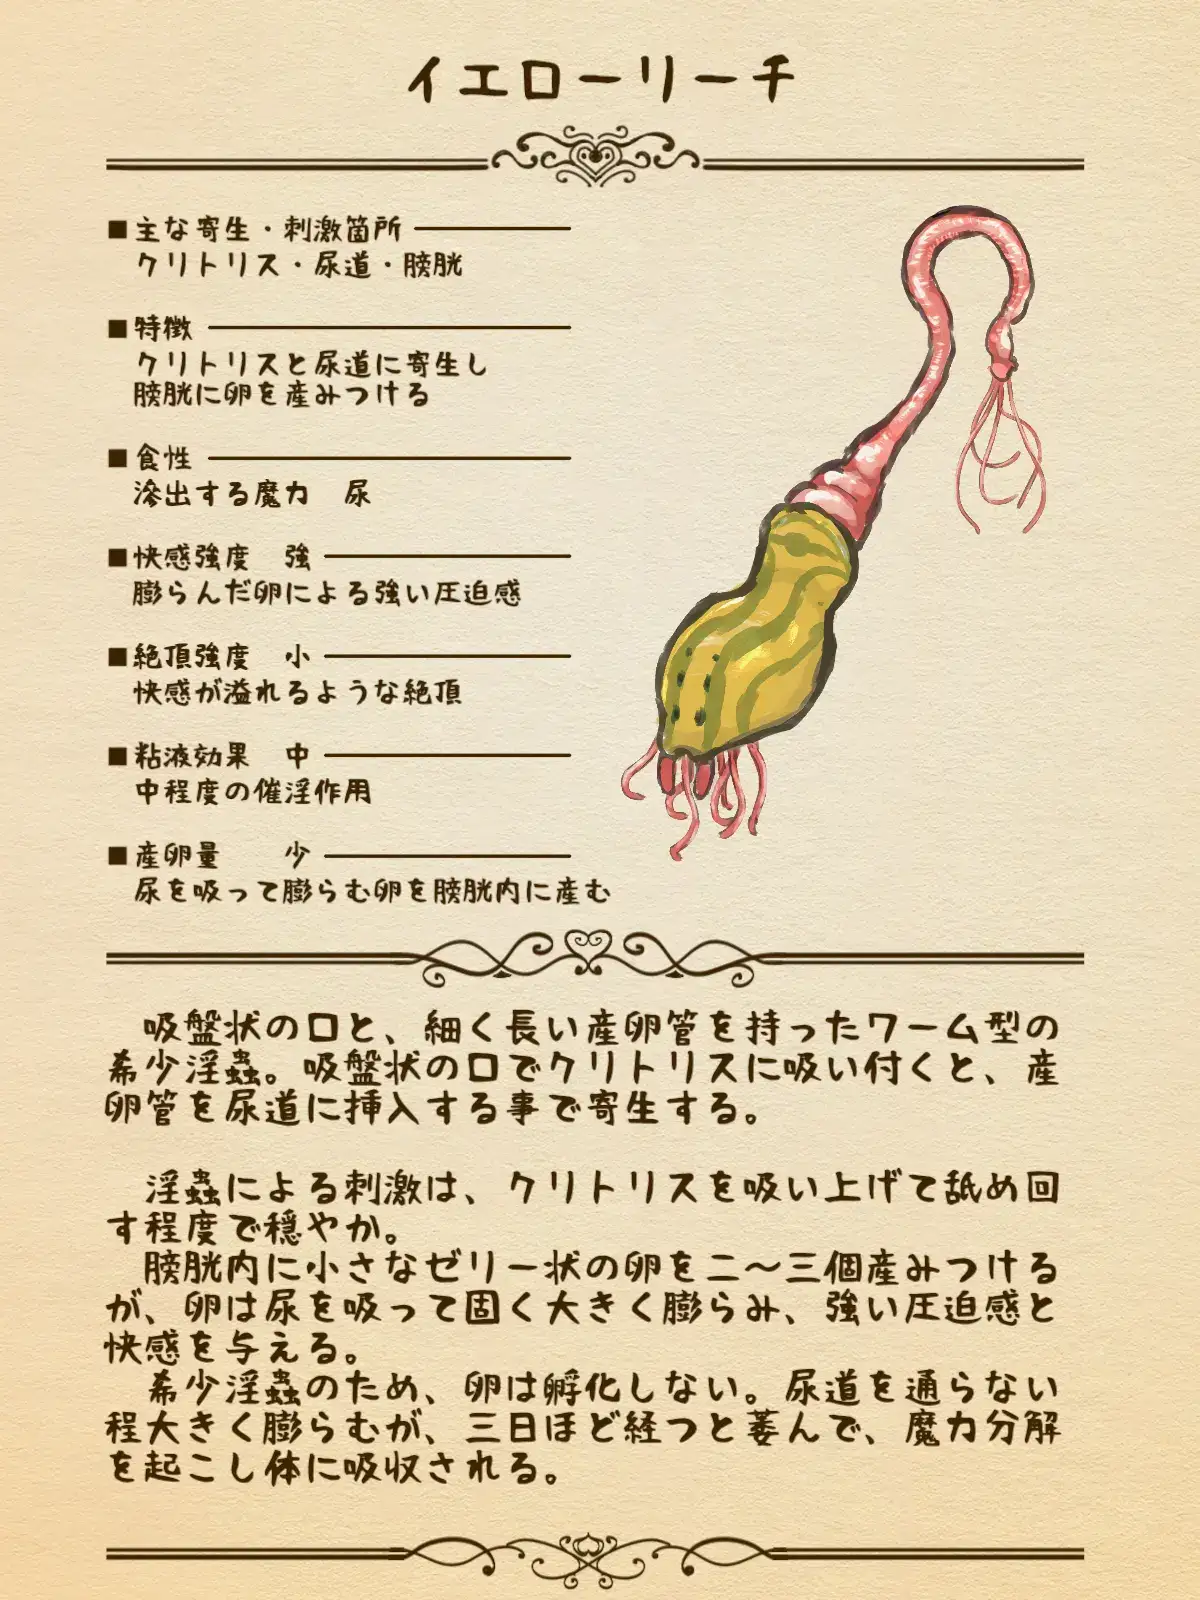 イエローリーチ
■主な寄生・刺激箇所
クリトリス・尿道・膀胱
■特徴
クリトリスと尿道に寄生し
膀胱に卵を産みつける
■食性
滲出する魔力　尿
■快感強度　強
膨らんだ卵による強い圧迫感
■絶頂強度　小
快感が溢れるような絶頂
■粘液効果　中
中程度の催淫作用
■産卵量　　少
尿を吸って膨らむ卵を膀胱内に産む
吸盤状の口と、細く長い産卵管を持ったワーム型の
希少淫蟲。吸盤状の口でクリトリスに吸い付くと、産
卵管を尿道に挿入する事で寄生する。
淫蟲による刺激は、クリトリスを吸い上げて舐め回
す程度で穏やか。
膀胱内に小さなゼリー状の卵を二～三個産みつける
が、卵は尿を吸って固く大きく膨らみ、強い圧迫感と
快感を与える。
希少淫蟲のため、卵は孵化しない。尿道を通らない
程大きく膨らむが、三日ほど経つと萎んで、魔力分解
を起こし体に吸収される。